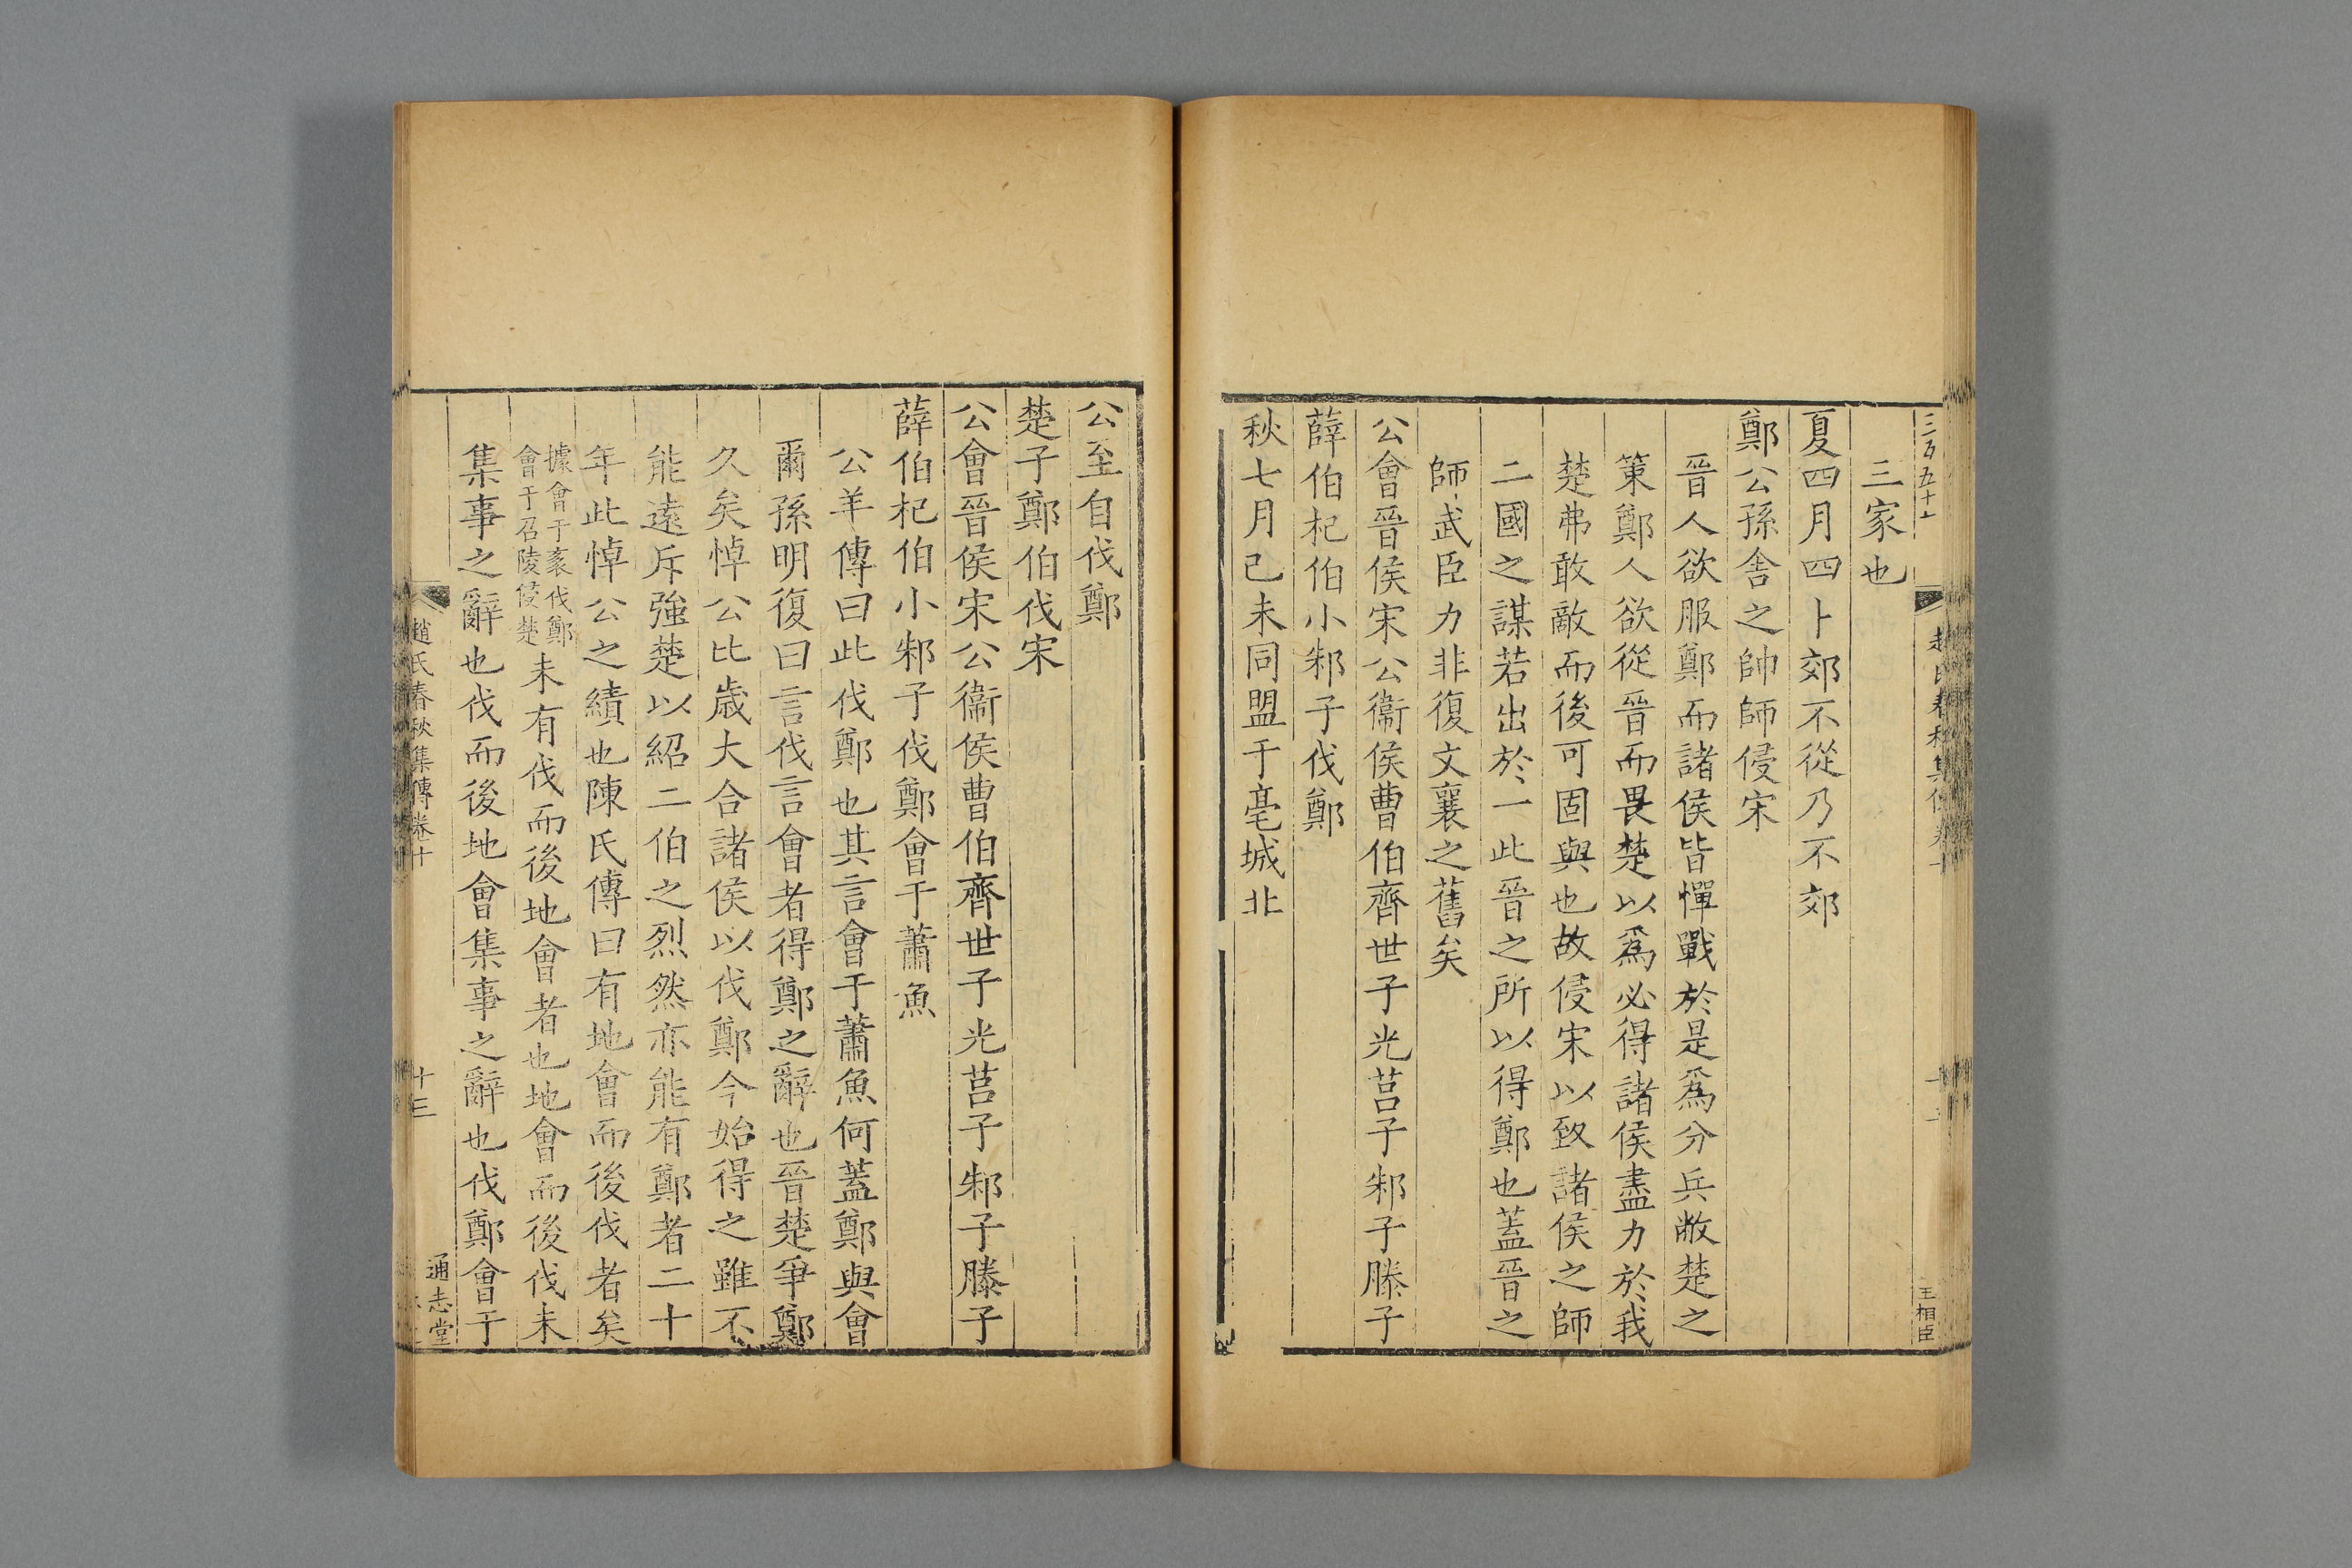 三家也
夏四月四卜郊不從乃不郊
鄭公孫舍之帥師侵宋
晉人欲服鄭而諸侯皆憚戰於是爲分兵敝楚之
策鄭人欲從晉而畏楚以爲必得諸侯盡力於我
楚弗敢敵而後可固與也故侵宋以致諸侯之師
二國之謀若出於一此晉之所以得鄭也蓋晉之
師武臣力非復文襄之舊矣
公會晉侯宋公衞侯曹伯齊世子光莒子邾子滕子
薛伯杞伯小邾子伐鄭
秋七月己未同盟于亳城北
王相臣
公至自伐鄭
楚子鄭伯伐宋
公會晉侯宋公衞侯曹伯齊世子光莒子邾子滕子
薛伯杞伯小邾子伐鄭會于蕭魚
公羊傳曰此伐鄭也其言會于蕭魚何蓋鄭與會
爾孫明復曰言伐言會者得鄭之辭也晉楚爭鄭
久矣悼公比歲大合諸侯以伐鄭今始得之雖不
能遠斥強楚以紹二伯之烈然亦能有鄭者二十
年此悼公之績也陳氏傳曰有地會而後伐者矣
據會于袤伐鄭
會于召陵侵楚
未有伐而後地會者也地會而後伐未
集事之辭也伐而後地會集事之辭也伐鄭會于
趙氏春秋集傳卷十
十三
通志堂